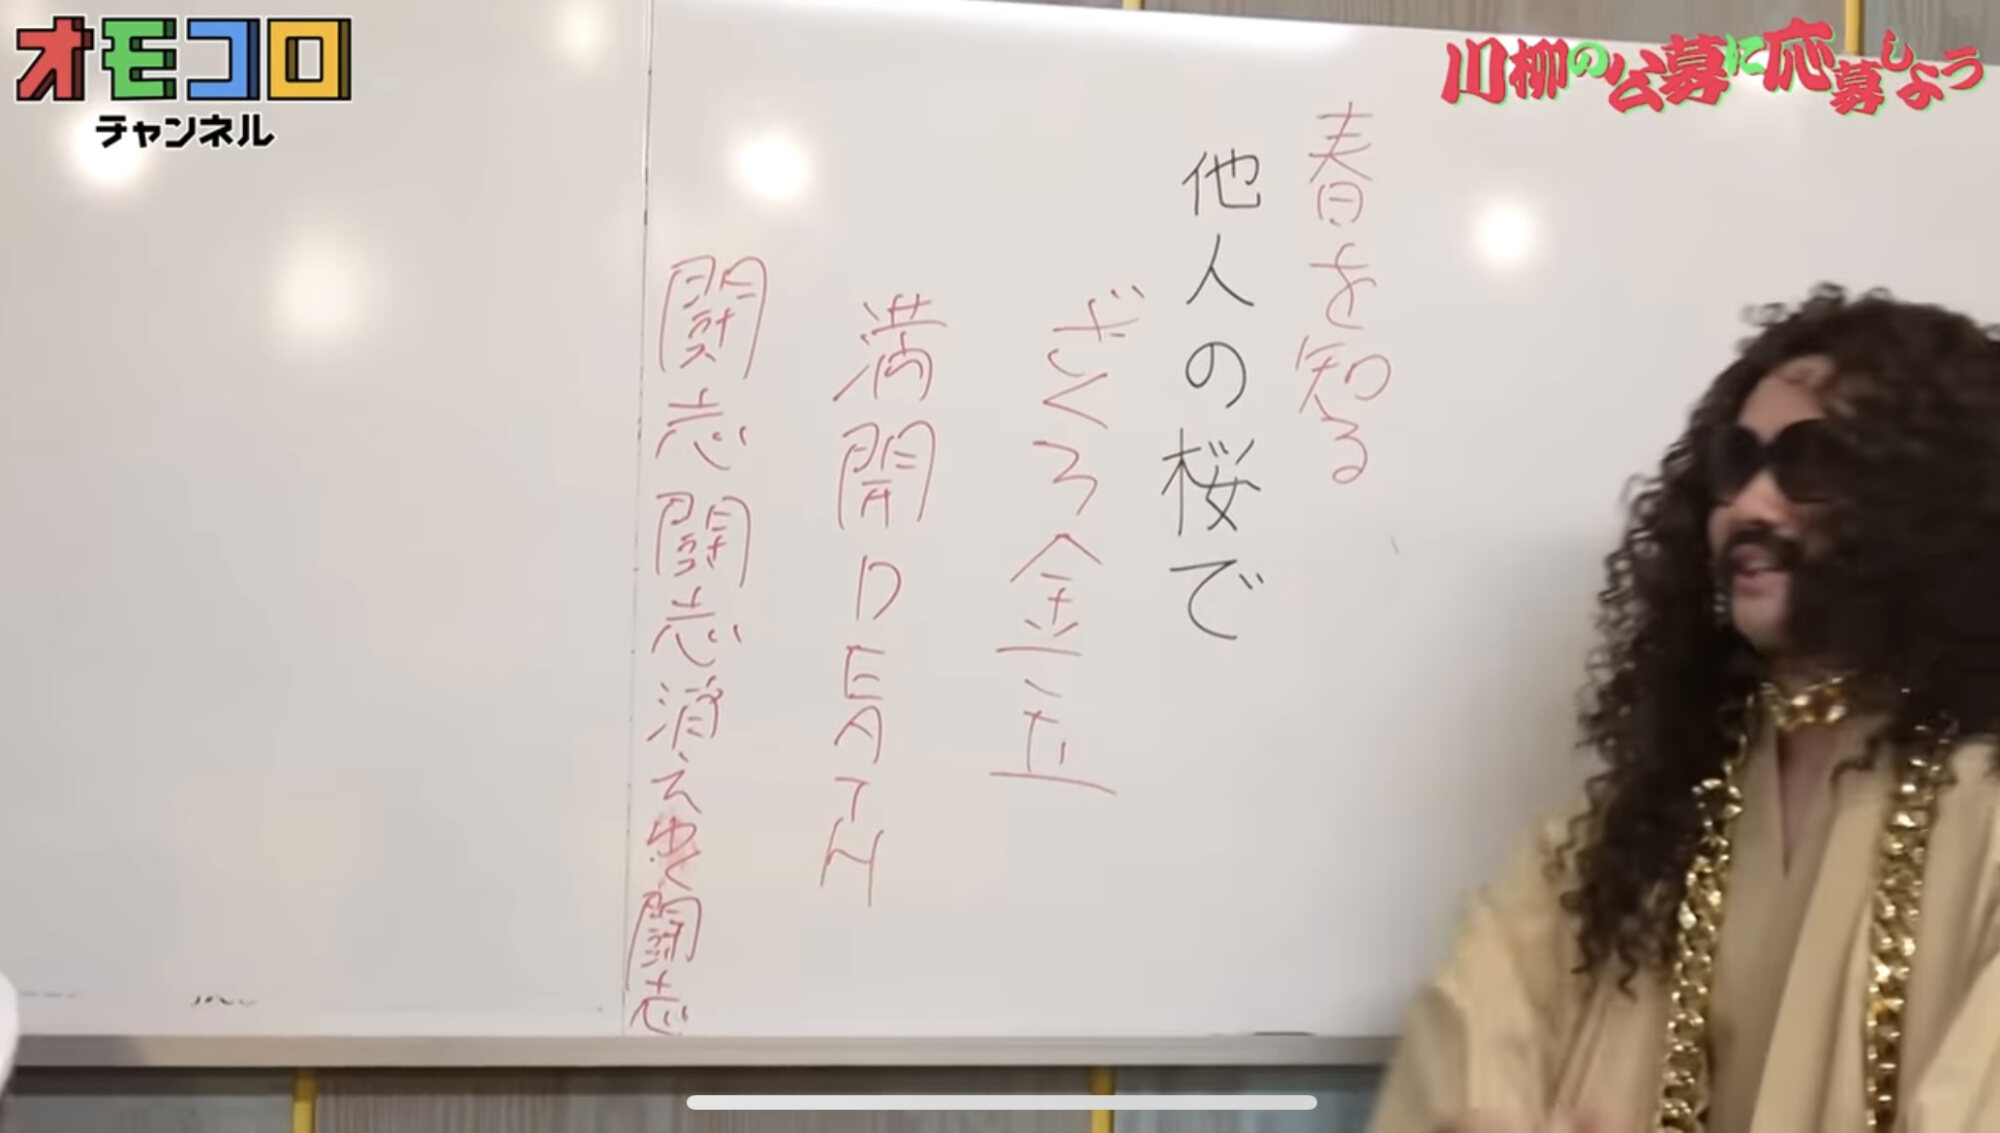 オモコロ
チャンネル
川柳の公募に応募しよう
春を知る
他人の桜で
ざくろ金玉
満開DEATH
闘志闘志消え
闘志